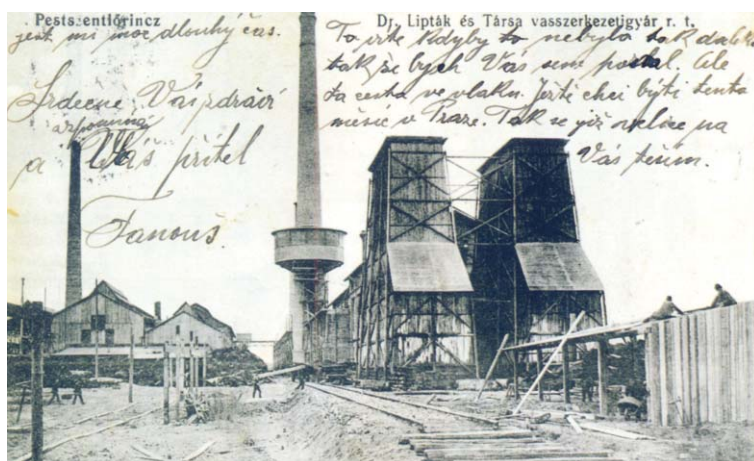 Pestszentlőrincz
Dr. Lipták és Társa vasszerkezetigyár r. t.
jest mi moc dlouhý čas.
Srdečně Vás zdraví
a vzpomíná
Váš přítel
Fanouš.
To víte kdyby to nebylo tak daleko
tak si bych Vás sem pozval. Ale
ta cesta ve vlaku. Ještě chci býti tento
měsíc v Praze. Tak se již velice na
Vás těším.